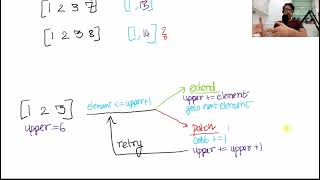 [1 2 3 7] [1, 13]
[1 2 3 8] [1, 14]
extend
element <= upper+1
upper += element
goto next element
[1 2 3]
upper=6
patch
retry
cost += 1
upper += upper + 1